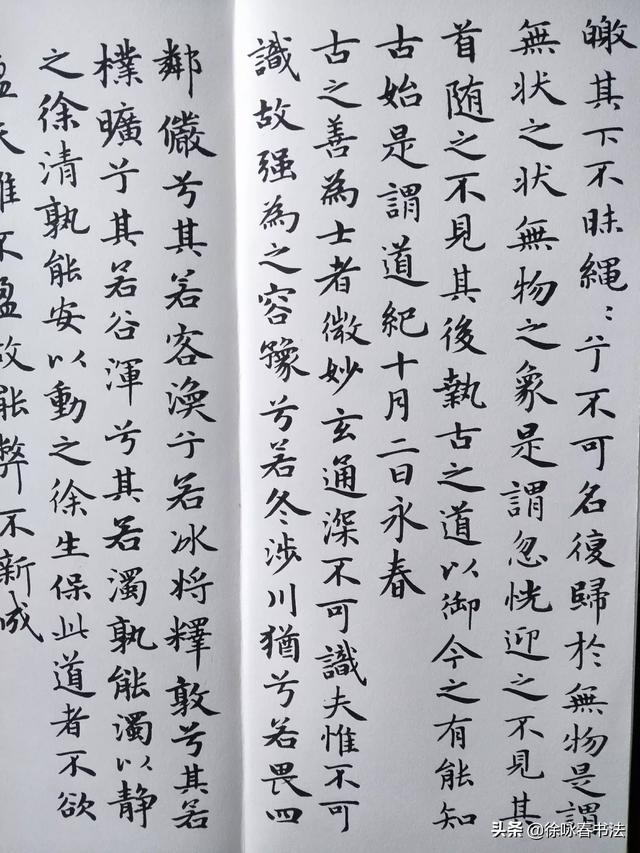 皦其下不昧繩〻兮不可名復歸於無物是謂
無状之状無物之象是謂忽恍迎之不見其
首随之不見其後執古之道以御今之有能知
古始是謂道紀十月二日永春
古之善為士者微妙玄通深不可識夫惟不可
識故强為之容豫兮若冬涉川猶兮若畏四
鄰儼兮其若客渙兮若冰将釋敦兮其若
樸曠兮其若谷渾兮其若濁孰能濁以静
之徐清孰能安以動之徐生保此道者不欲
盈夫惟不盈故能弊不新成
头条 @徐咏春书法